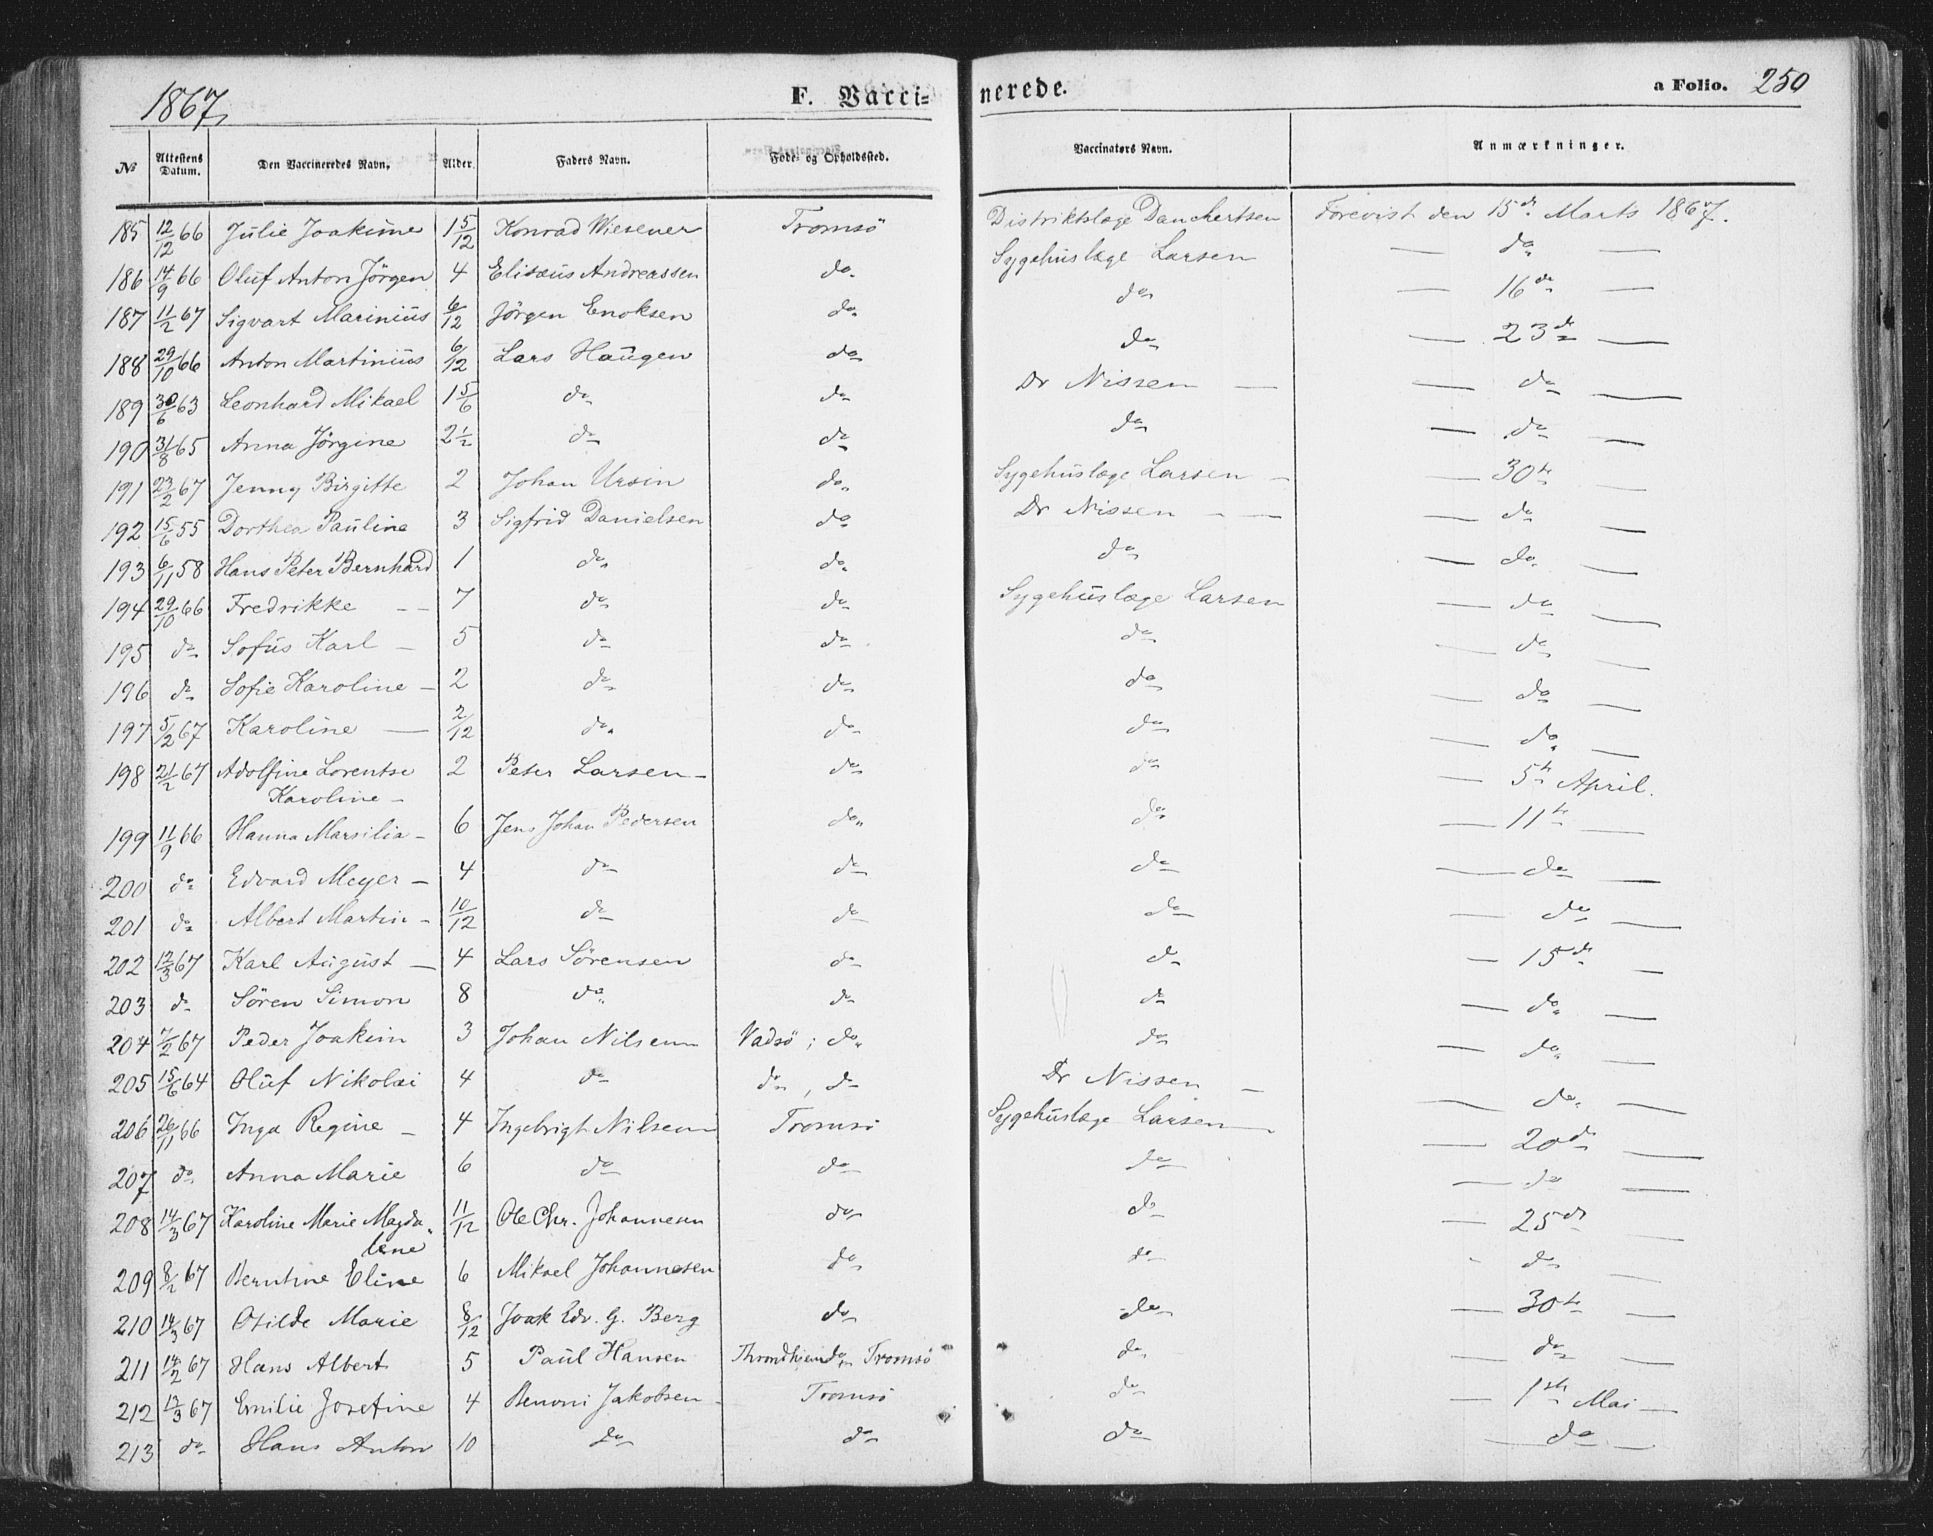 1867, F. Vaccinerede. a Folio. 250
№ Attestens Datum. Den Vaccineredes Navn. Alder. Faders Navn. Føde- og Opholdssted. Vaccinatørs Navn. Anmærkninger.
185 12/12 66 Julie Joakime 1 5/12 Konrad Wiesener Tromsö Distriktslæge Danchertsen Forevist den 15de Marts 1867.
186 14/9 66 Oluf Anton Jörgen 4 Elisæus Andreassen do Sygehuslæge Larsen — do —
187 11/2 67 Sigvart Marinius 6/12 Jörgen Enoksen do do — 16de —
188 29/10 66 Anton Martinius 6/12 Lars Haugen do do — 23de —
189 30/6 63 Leonhard Mikael 1 5/6 do do Dr Nissen — — do —
190 31/8 65 Anna Jørgine 2 1/2 do do do — do —
191 23/2 67 Jenny Birgitte 2 Johan Ursin do Sygehuslæge Larsen — — 30te —
192 15/6 55 Dorthea Pauline 3 Sigfrid Danielsen do Dr Nissen — — — do —
193 6/11 58 Hans Peter Bernhard 1 do do do — do —
194 29/10 66 Fredrikke — — 7 do do Sygehuslæge Larsen — do —
195 do Sofus Karl — 5 do do do — do —
196 do Sofie Karoline — 2 do do do — do —
197 5/2 67 Karoline — 2/12 do do do — do —
198 21/2 67 Adolfine Lorentse Karoline — 2 Peter Larsen — do do — 5te April.
199 11/9 66 Hanna Marsilia — 6 Jens Johan Pedersen do do — 11te —
200 do Edvard Meyer — 4 do do do — do —
201 do Albert Martin — 10/12 do do do — do —
202 12/3 67 Karl August — 4 Lars Sörensen do do — 15de —
203 do Sören Simon 8 do do do — do —
204 7/2 67 Peder Joakim 3 Johan Nilsen Vadsö ; do do — do —
205 15/6 64 Oluf Nikolai 4 do do , do Dr Nissen — — do —
206 26/11 66 Inga Regine — 4 Ingebrigt Nilsen Tromsö Sygehuslæge Larsen — — 20de —
207 do Anna Marie 6 do do do — do —
208 14/3 67 Karoline Marie Magdalene 11/12 Ole Chr. Johannesen do do — 25de —
209 8/2 67 Berntine Eline 6 Mikael Johannesen do do - do —
210 14/3 67 Otilde Marie 8/12 Joak Edv. G. Berg do do — 30te —
211 14/2 67 Hans Albert 5 Paul Hansen Throndhjem do, Tromsö do — do —
212 13/3 67 Emilie Josefine 4 Benoni Jakobsen — Tromsö do — 1ste Mai —
213 do Hans Anton 10 do do do — do —